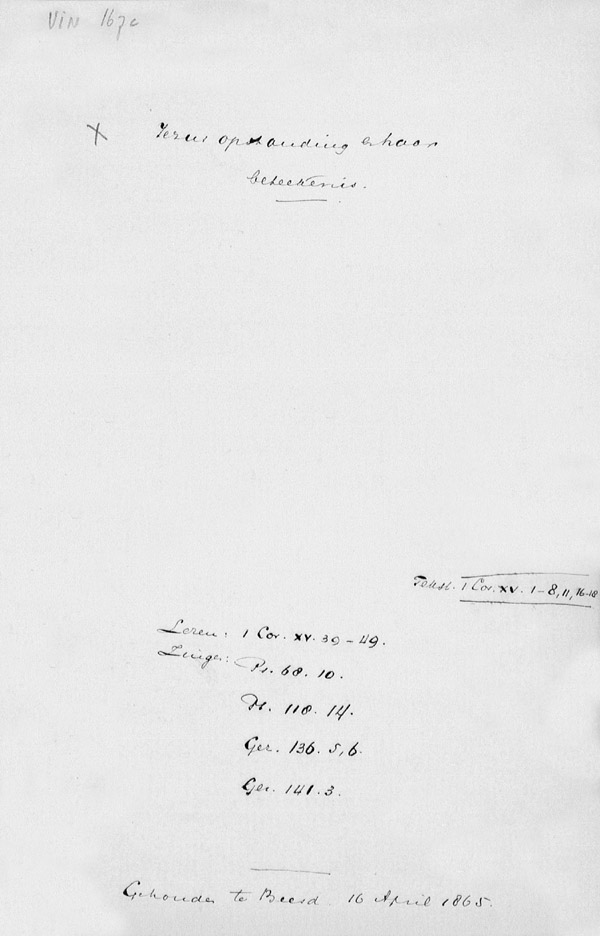 VIN 167c
X Jezus opstanding en haar
beteekenis.
Tekst. 1 Cor. XV. 1-8, 11, 16-18
Lezen: 1 Cor. XV. 39-49.
Zingen: Ps. 68. 10.
Ps. 118. 14.
Gez. 136. 5, 6.
Gez. 141. 3.
Gehouden te Beesd 16 April 1865.